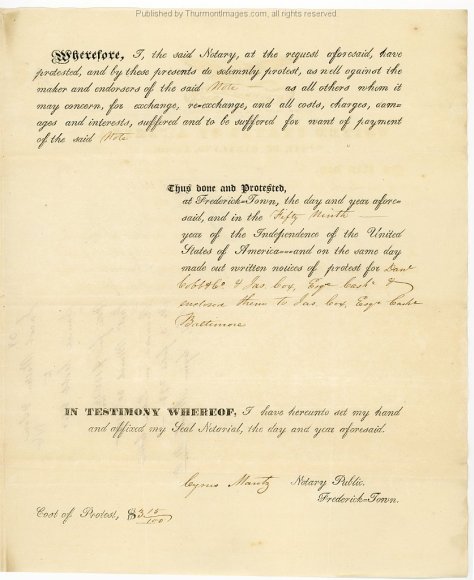 Published by ThurmontImages.com, all rights reserved.
Wherefore, I, the said Notary, at the request aforesaid, have
protested, and by these presents do solemnly protest, as well against the
maker and endorsers of the said Note as all others whom it
may concern, for exchange, re-exchange, and all costs, charges, dam-
ages and interests, suffered and to be suffered for want of payment
of the said Note
Thus done and Protested,
at Frederick-Town, the day and year afore-
said, and in the Fifty Ninth
year of the Independence of the United
States of America---and on the same day
made out written notices of protest for Danl
Cobb & Co & Jas. Cox, Esqr Cashr &
enclosed them to Jas Cox, Esqr Cashr
Baltimore
IN TESTIMONY WHEREOF, I have hereunto set my hand
and affixed my Seal Notarial, the day and year aforesaid.
Cyrus Mantz Notary Public.
Frederick-Town.
Cost of Protest, $3 15/100